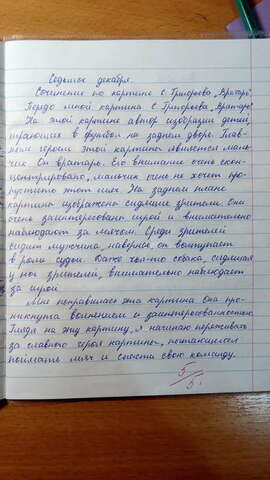 Седьмое декабря.
Сочинение по картине С. Григорьева „Вратарь"
Передо мной картина С. Григорьева „Вратарь".
На этой картине автор изобразил детей,
играющих в футбол на заднем дворе. Глав-
ным героем этой картины является маль-
чик. Он вратарь. Его внимание очень скон-
центрировано, мальчик очень не хочет про-
пустить этот мяч. На заднем плане
картины изображены сидящие зрители. Они
очень заинтересованы игрой и внимательно
наблюдают за мячом. Среди зрителей
сидит мужчина, наверное, он выступает
в роли судьи. Даже чья-то собака, сидящая
у ног зрителей, внимательно наблюдает
за игрой.
Мне понравилась эта картина. Она про-
никнута волнением и заинтересованностью.
Глядя на эту картину, я начинаю переживать
за главного героя картины, пытающегося
поймать мяч и спасти свою команду.
5/5.